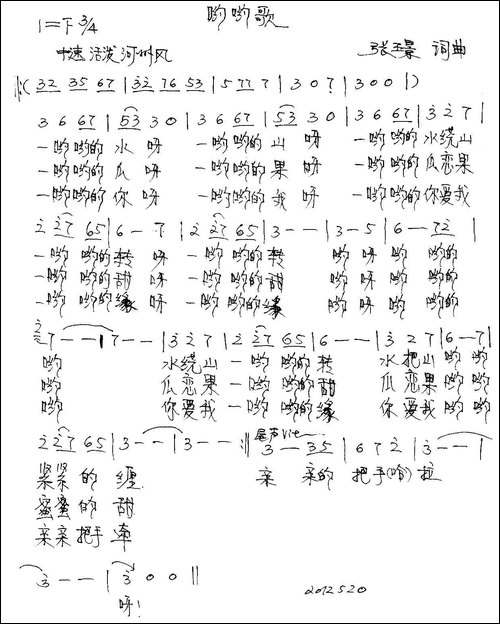 哟哟歌
1=下 3/4
中速 活泼 河州风
张玉景 词曲
(32 35 67 | 32 76 53 | 5 77 7 | 3 0 7 | 3 0 0 |)
3 6 67 | 53 3 0 | 3 6 67 | 53 3 0 | 3 6 67 | 3 2 7 |
一哟哟的 水 呀 一哟哟的 山 呀 一哟哟的 水绕山
一哟哟的 瓜 呀 一哟哟的 果 呀 一哟哟的 瓜恋果
一哟哟的 你 呀 一哟哟的 我 呀 一哟哟的 你爱我
2 27 65 | 6 — 7 | 2 27 65 | 3 — — | 3 — 5 | 6 — 72 |
一哟 哟的 转 呀 一哟 哟的 转 哟 呀 哟 哟的
一哟 哟的 甜 呀 一哟 哟的 甜 哟 呀 哟 哟的
一哟 哟的 缘 呀 一哟 哟的 缘 哟 呀 哟 哟的
7 — — | 7 — — | 3 2 7 | 2 27 65 | 6 — — | 3 2 7 | 6 — 7 |
哟 水绕山 一哟 哟的 转 水把山 哟 哟
哟 瓜恋果 一哟 哟的 甜 瓜恋果 哟 哟
哟 你爱我 一哟 哟的 缘 你爱我 哟 哟
2 27 65 | 3 — — | 3 — — :‖ 尾声 3 — 35 | 6 7 2 | 3 — — |
紧紧 的 缠 亲 亲的 把手(哈) 拉
蜜蜜 的 甜
亲亲 把手 牵
3 — — | 3 0 0 ‖
呀!
2012520